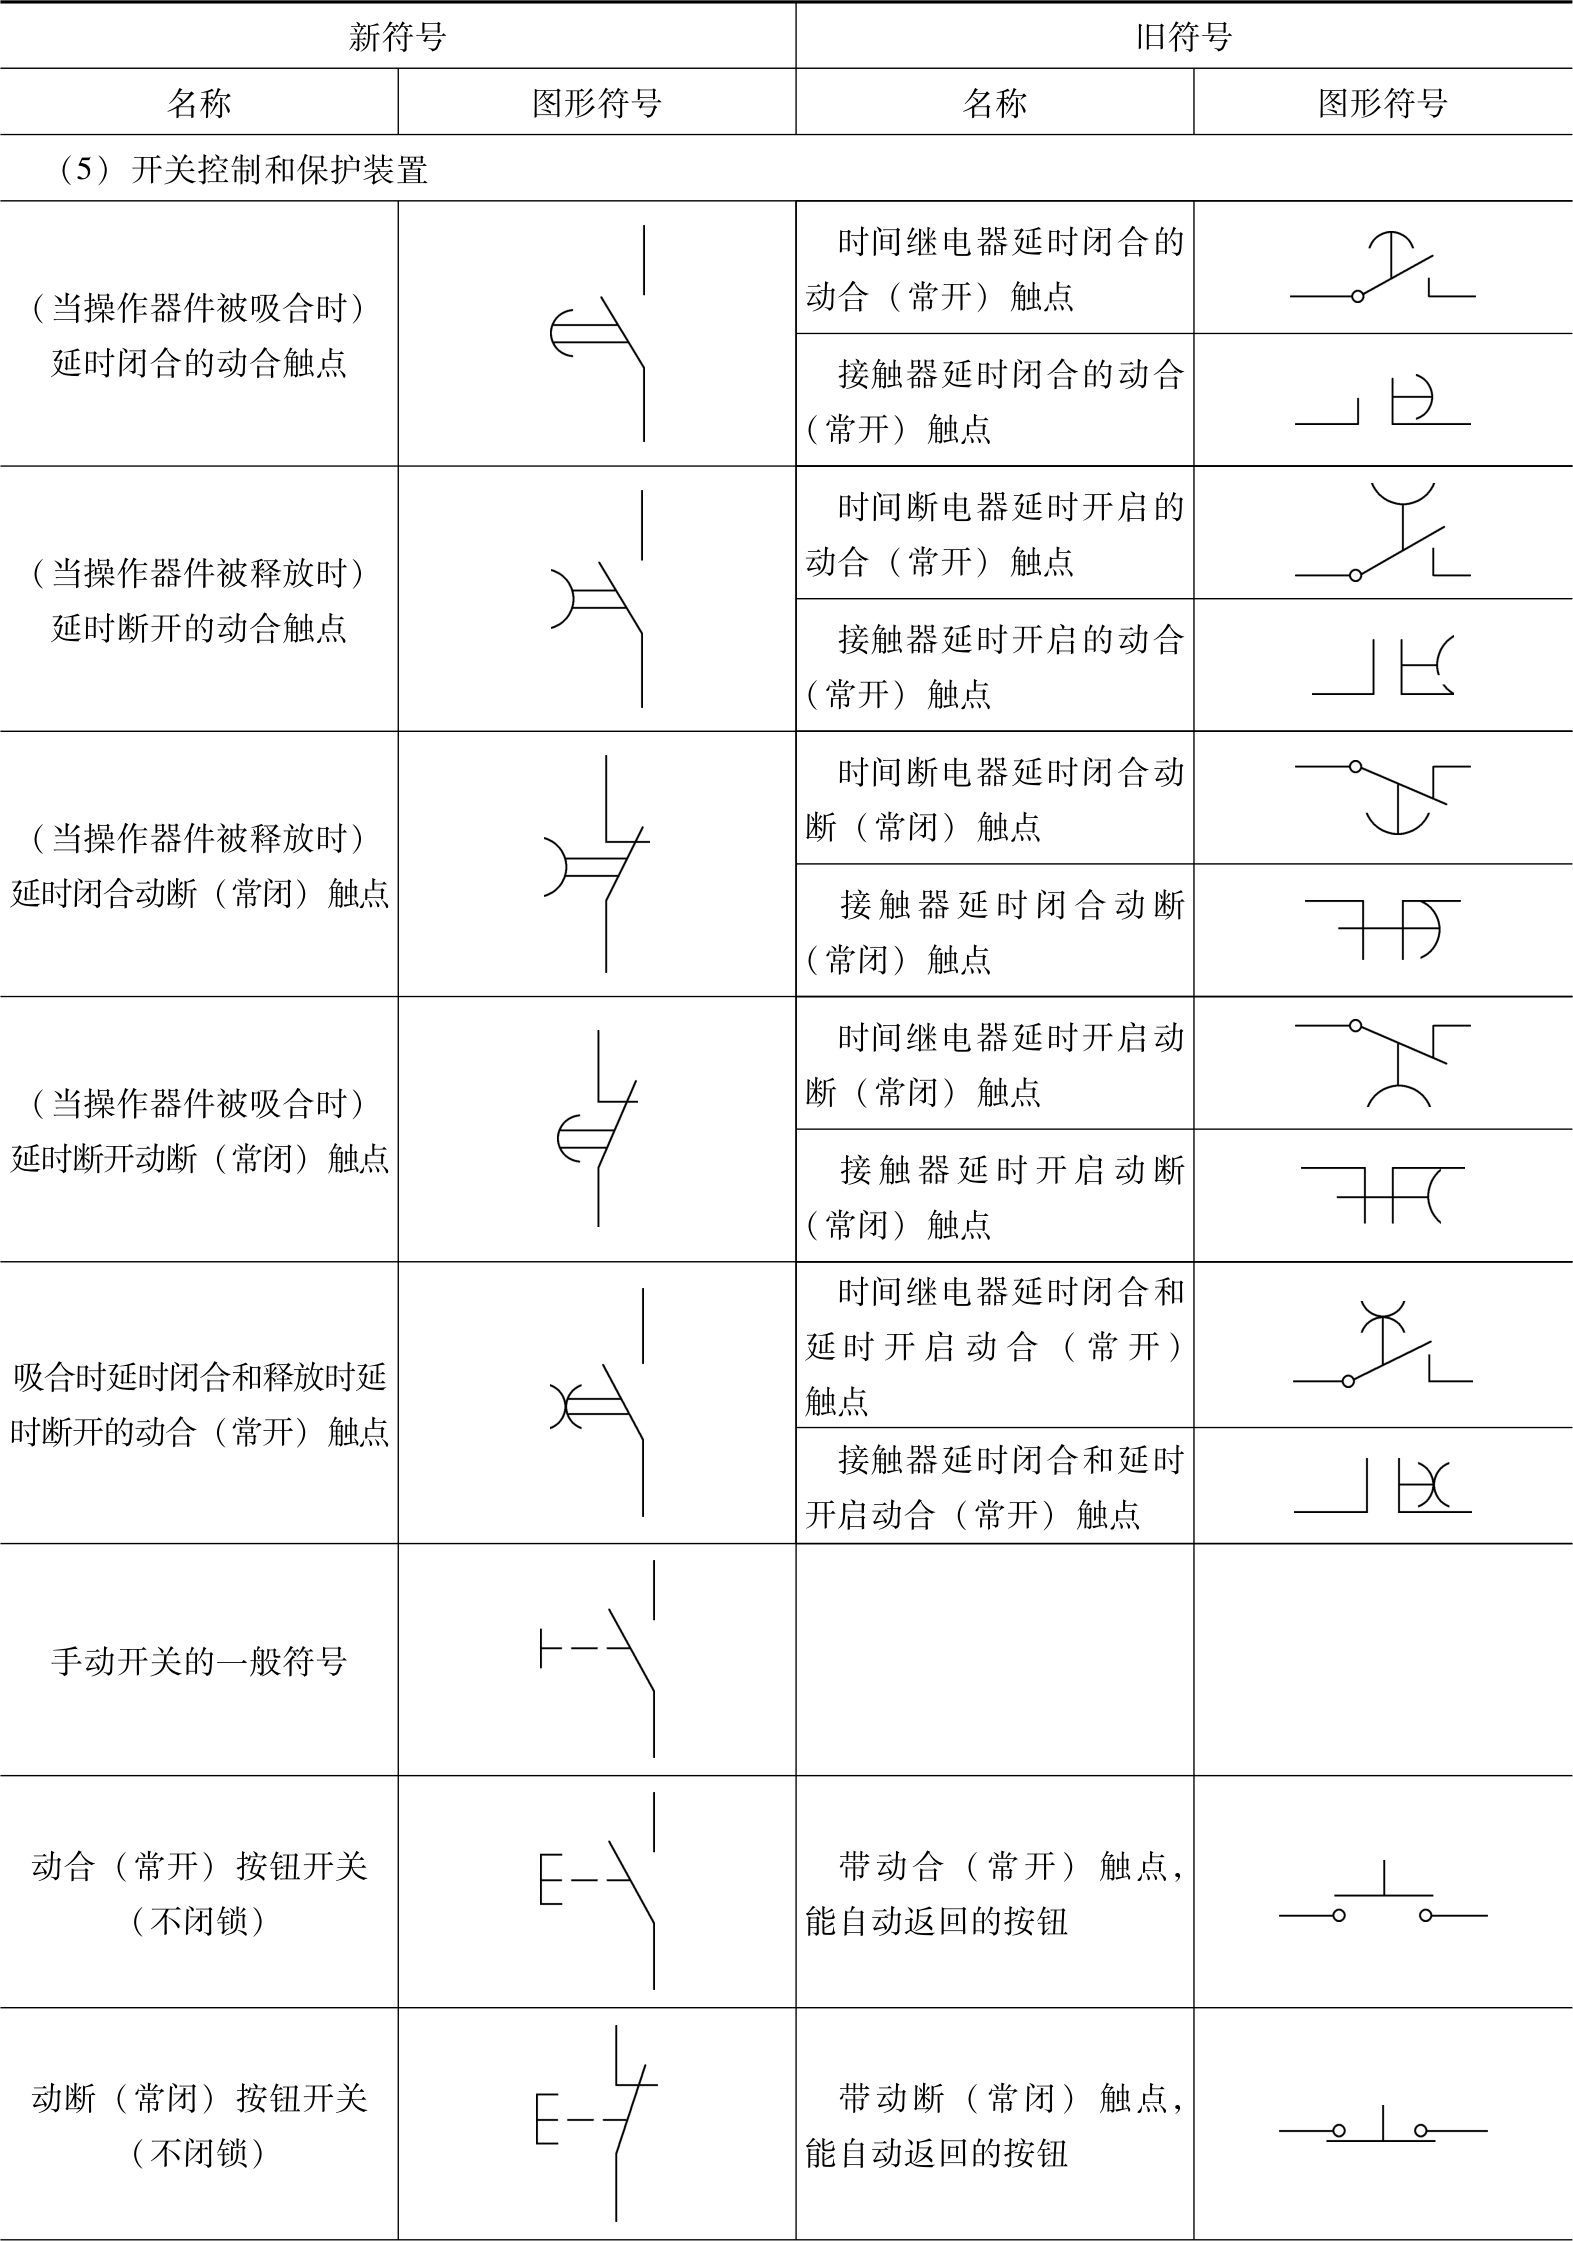 新符号
旧符号
名称
图形符号
名称
图形符号
（5）开关控制和保护装置
（当操作器件被吸合时）
延时闭合的动合触点
时间继电器延时闭合的
动合（常开）触点
接触器延时闭合的动合
（常开）触点
（当操作器件被释放时）
延时断开的动合触点
时间断电器延时开启的
动合（常开）触点
接触器延时开启的动合
（常开）触点
（当操作器件被释放时）
延时闭合动断（常闭）触点
时间断电器延时闭合动
断（常闭）触点
接触器延时闭合动断
（常闭）触点
（当操作器件被吸合时）
延时断开动断（常闭）触点
时间继电器延时开启动
断（常闭）触点
接触器延时开启动断
（常闭）触点
吸合时延时闭合和释放时延
时断开的动合（常开）触点
时间继电器延时闭合和
延时开启动合（常开）
触点
接触器延时闭合和延时
开启动合（常开）触点
手动开关的一般符号
动合（常开）按钮开关
（不闭锁）
带动合（常开）触点，
能自动返回的按钮
动断（常闭）按钮开关
（不闭锁）
带动断（常闭）触点，
能自动返回的按钮